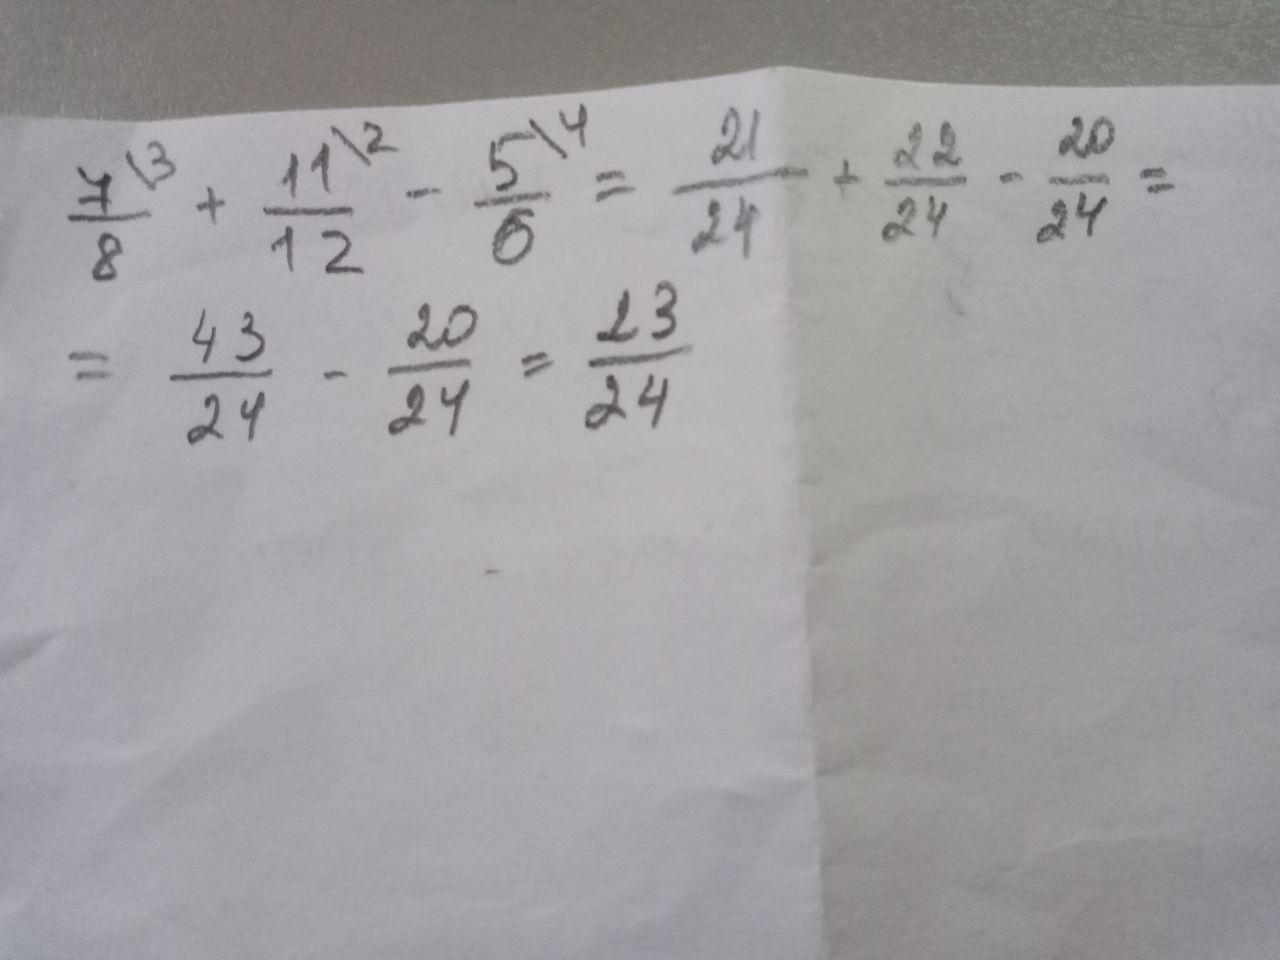 7\3/8 + 11\2/12 - 5\4/6 = 21/24 + 22/24 - 20/24 =
= 43/24 - 20/24 = 23/24